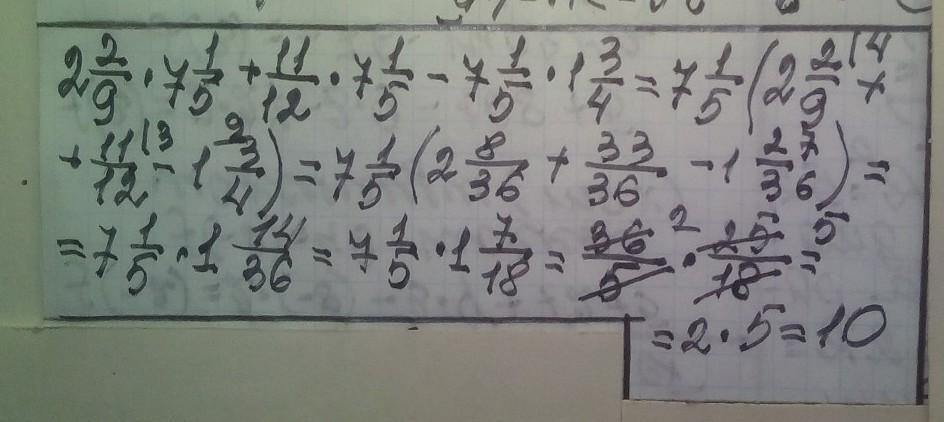 2 2/9 · 7 1/5 + 11/12 · 7 1/5 - 7 1/5 · 1 3/4 = 7 1/5 (2 2/9 |4 +
+ 11/12 |3 - 1 3/4 |9) = 7 1/5 (2 8/36 + 33/36 - 1 27/36) =
= 7 1/5 · 1 14/36 = 7 1/5 · 1 7/18 = 36/5 2 · 25/18 5 =
= 2 · 5 = 10